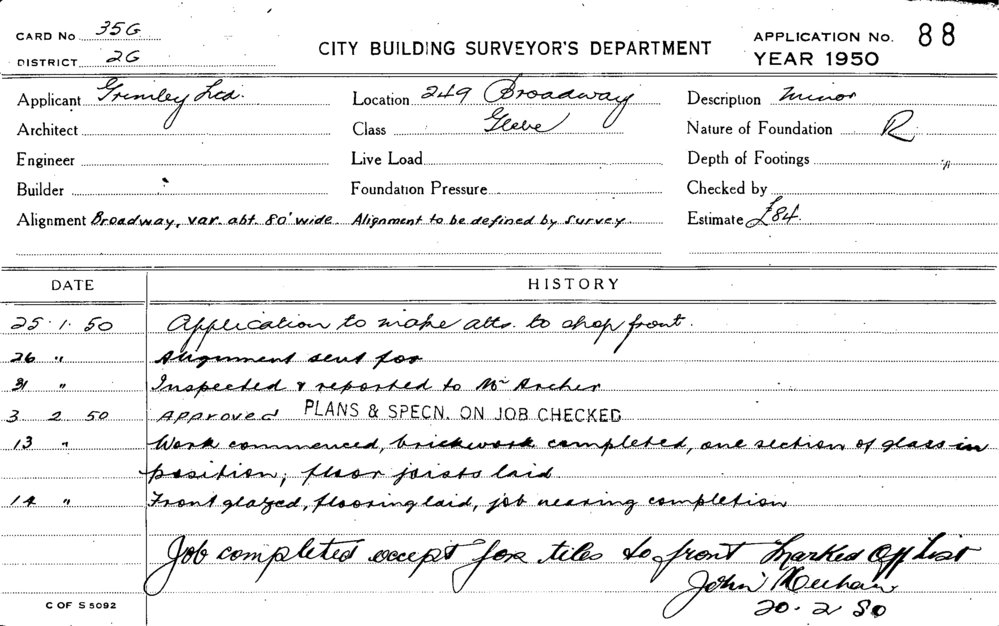 CARD No 35G
DISTRICT 2G
CITY BUILDING SURVEYOR'S DEPARTMENT
APPLICATION No. 88
YEAR 1950
Applicant Grimley Ltd. Location 249 Broadway Description Minor
Architect Class Glebe Nature of Foundation R
Engineer Live Load Depth of Footings "
Builder Foundation Pressure Checked by
Alignment Broadway, var. abt. 80' wide. Alignment to be defined by survey. Estimate £84.
DATE HISTORY
25.1.50 Application to make alts. to shop front.
26 " Alignment sent for
31 " Inspected & reported to Mr Archer
3 2 50 Approved PLANS & SPECN. ON JOB CHECKED
13 " Work commenced, brickwork completed, one section of glass in
position, floor joists laid
14 " Front glazed, flooring laid, job nearing completion
Job completed except for tiles to front Marked Off List
John Meehan
20.2.50
C OF S 5092